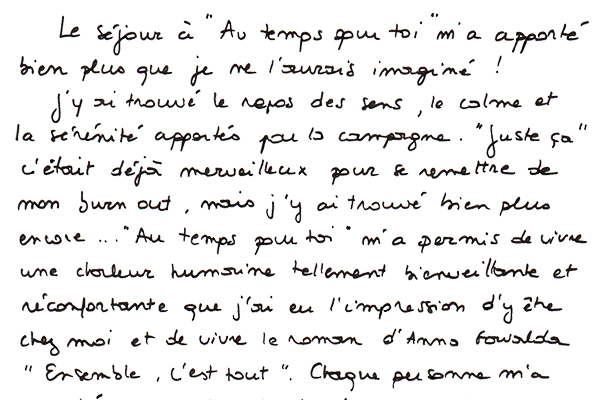 Le séjour à "Au temps pour toi" m'a apporté
bien plus que je ne l'aurais imaginé !
J'y ai trouvé le repos des sens, le calme et
la sérénité apportés par la campagne. "Juste ça"
c'était déjà merveilleux pour se remettre de
mon burn out, mais j'y ai trouvé bien plus
encore ... "Au temps pour toi" m'a permis de vivre
une chaleur humaine tellement bienveillante et
réconfortante que j'ai eu l'impression d'y être
chez moi et de vivre le roman d'Anna Gavalda
"Ensemble, c'est tout". Chaque personne m'a